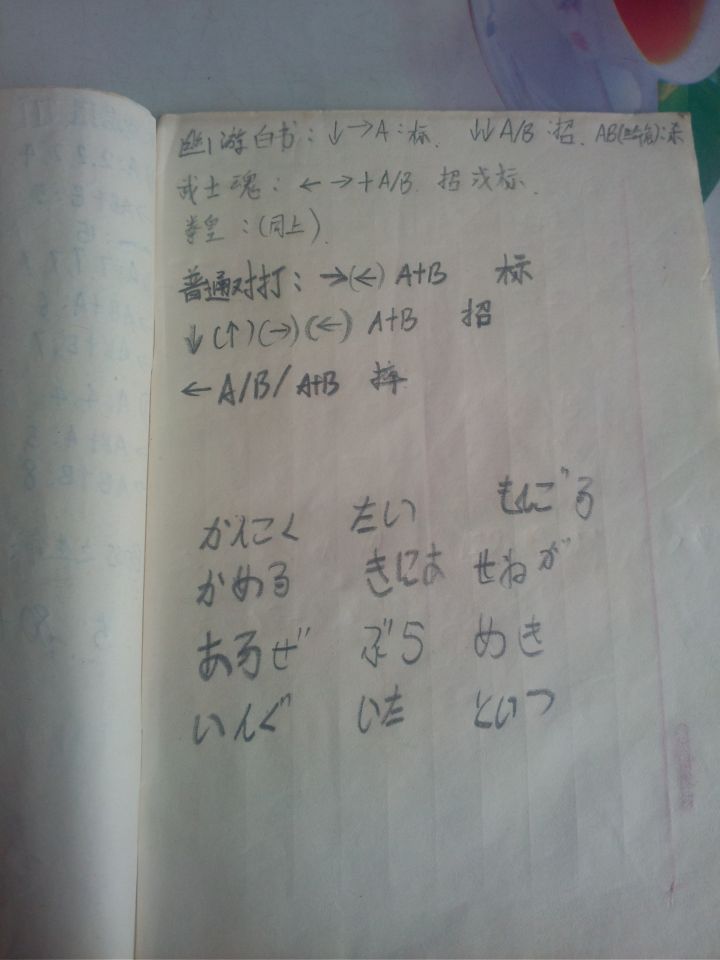 幽游白书：↓→A：标. ↓↓A/B：招. AB(蹲):杀
武士魂：←→+A/B. 招或标.
拳皇：(同上).
普通对打：→(←) A+B 标
↓(↑)(→)(←) A+B 招
← A/B/A+B 摔
かんこく たい もんごる
かめる きにあ せねが
あるぜ ぶら めき
いんぐ いた といつ